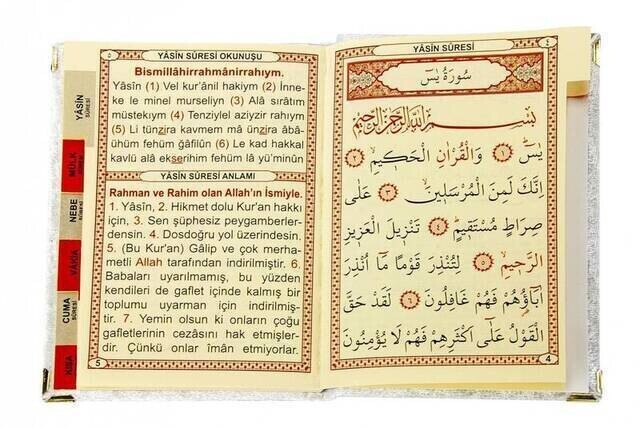 YÂSİN SÛRESİ
٤
سُورَةُ يٰسٓ
بِسْمِ اللّٰهِ الرَّحْمٰنِ الرَّحِيمِ
يٰسٓ ﴿١﴾ وَالْقُرْاٰنِ الْحَكِيمِ ﴿٢﴾
اِنَّكَ لَمِنَ الْمُرْسَلِينَ ﴿٣﴾ عَلٰى
صِرَاطٍ مُسْتَقِيمٍ ﴿٤﴾ تَنْزِيلَ الْعَزِيزِ
الرَّحِيمِ ﴿٥﴾ لِتُنْذِرَ قَوْمًا مَٓا اُنْذِرَ
اٰبَٓاؤُهُمْ فَهُمْ غَافِلُونَ ﴿٦﴾ لَقَدْ حَقَّ
الْقَوْلُ عَلٰٓى اَكْثَرِهِمْ فَهُمْ لَا يُؤْمِنُونَ
4
٥
YÂSİN SÛRESİ OKUNUŞU
Bismillâhirrahmânirrahıym.
Yâsîn (1) Vel kur'ânil hakiym (2) İnne-
ke le minel murseliyn (3) Alâ sırâtım
müstekıym (4) Tenziylel aziyzir rahıym
(5) Li tünzira kavmem mâ ünzira âbâ-
ühüm fehüm ğâfilûn (6) Le kad hakkal
kavlü alâ ekserihim fehüm lâ yü'minûn
YÂSİN SÛRESİ ANLAMI
Rahman ve Rahim olan Allah'ın İsmiyle.
1. Yâsîn, 2. Hikmet dolu Kur'an hakkı
için, 3. Sen şüphesiz peygamberler-
densin. 4. Dosdoğru yol üzerindesin.
5. (Bu Kur'an) Gâlip ve çok merha-
metli Allah tarafından indirilmiştir. 6.
Babaları uyarılmamış, bu yüzden
kendileri de gaflet içinde kalmış bir
toplumu uyarman için indirilmiş-
tir. 7. Yemin olsun ki onların çoğu
gafletlerinin cezâsını hak etmişler-
dir. Çünkü onlar îmân etmiyorlar.
5
YÂSİN
SÛRESİ
MÜLK
SÛRESİ
NEBE
SÛRESİ
VÂKIA
CUMA
SÛRESİ
KISA